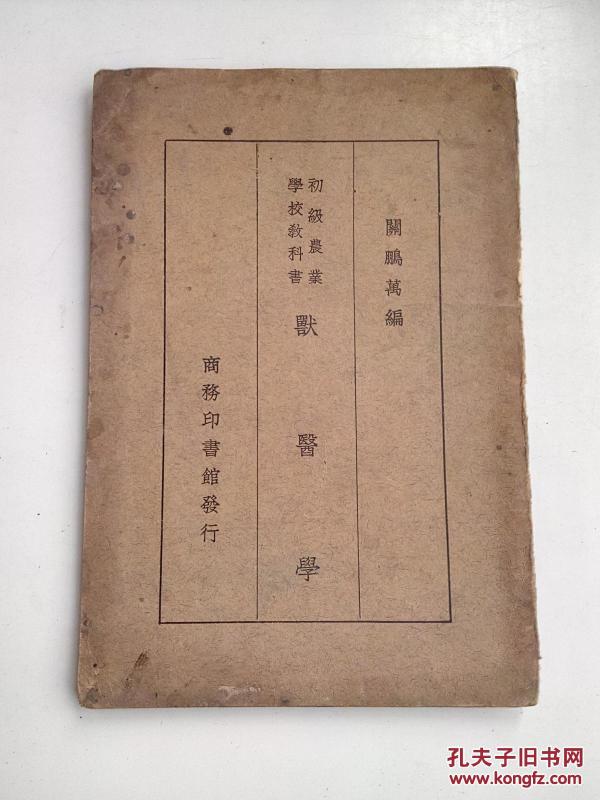 關鵬萬編
初級農業
學校教科書
獸醫學
商務印書館發行
孔夫子旧书网
www.kongfz.com